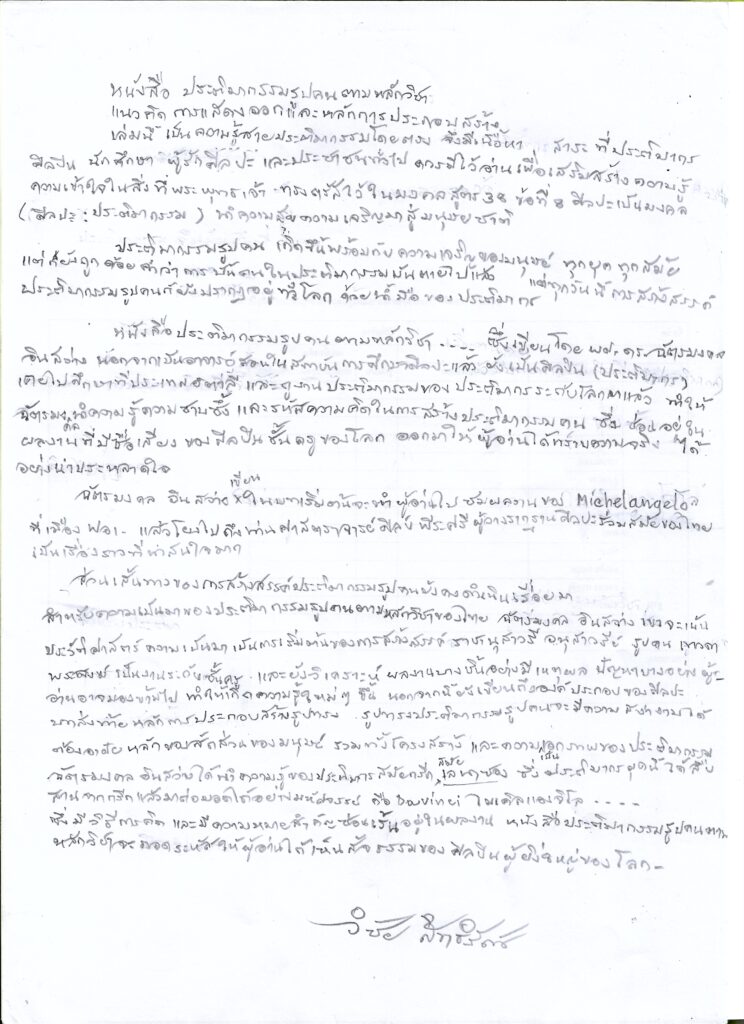 หนังสือ ประติมากรรมรูปคนตามหลักวิชา
แนวคิด การแสดงออกและหลักการประกอบสร้าง
เล่มนี้ เป็นความรู้สายประติมากรรมโดยตรง จึงมีเนื้อหา สาระ ที่ประติมากร
ศิลปิน นักศึกษา ผู้รักศิลปะ และประชาชนทั่วไป ควรมีไว้อ่านเพื่อเสริมสร้างความรู้
ความเข้าใจในสิ่งที่พระพุทธเจ้า ทรงตรัสไว้ในมงคลสูตร 38 ข้อที่ 8 ศิลปะเป็นมงคล
(ศิลปะ : ประติมากรรม) นำความสุขความเจริญมาสู่มนุษยชาติ
ประติมากรรมรูปคน เกิดขึ้นพร้อมกับความเจริญของมนุษย์ ทุกยุค ทุกสมัย
แต่ก็ยังถูกด้อยค่าว่าการปั้นคนในประติมากรรมมันตายไปแล้ว แต่ทุกวันนี้การสร้างสรรค์
ประติมากรรมรูปคนก็ยังปรากฏอยู่ทั่วโลก ด้วยฝีมือของประติมากร
หนังสือประติมากรรมรูปคนตามหลักวิชา .... ซึ่งเขียนโดย ผศ.ดร.ฉัตรมงคล
อินสว่าง นอกจากเป็นอาจารย์สอนในสถาบันการศึกษาศิลปะแล้ว ยังเป็นศิลปิน (ประติมากร)
เคยไปศึกษาที่ประเทศอิตาลี และดูงานประติมากรรมของประติมากรระดับโลกมาแล้ว ทำให้
ฉัตรมงคลนำความรู้ความซาบซึ้ง และรหัสความคิดในการสร้างประติมากรรมคน ซึ่งซ่อนอยู่ใน
ผลงานที่มีชื่อเสียง ของศิลปินชั้นครูของโลก ออกมาให้ผู้อ่านได้ทราบความจริง ได้
อย่างน่าประหลาดใจ
ฉัตรมงคล อินสว่าง เขียนในบทเริ่มต้นจะนำผู้อ่านไป ชมผลงานของ Michelangelo
ที่เมือง ฟลอเ- แล้วโยงไปถึงท่านศาสตราจารย์ศิลป์ พีระศรี ผู้วางรากฐานศิลปะร่วมสมัยของไทย
เป็นเรื่องราวที่น่าสนใจมาก
ส่วนเส้นทางของการสร้างสรรค์ประติมากรรมรูปคนยังคงดำเนินเรื่อยมา
สำหรับความเป็นมาของประติมากรรมรูปคนตามหลักวิชาของไทย ฉัตรมงคล อินสว่าง เขาจะเน้น
ประวัติศาสตร์ ความเป็นมา เป็นการเริ่มต้นของการสร้างสรรค์ ราชานุสาวรีย์ อนุสาวรีย์ รูปคน เทวดา
พระสงฆ์ เป็นงานระดับชั้นครู และยังวิเคราะห์ ผลงานบางชิ้นอย่างมีเหตุผล ปัญหาบางอย่าง ผู้-
อ่านอาจมองข้ามไป ทำให้เกิดความรู้ใหม่ๆ ขึ้น นอกจากนี้ยังเขียนถึงองค์ประกอบของศิลปะ
บทส่งท้ายหลักการประกอบสร้างรูปทรง รูปทรงประติมากรรมรูปคนจะมีความสง่างามได้
ต้องอาศัยหลักของสัดส่วนของมนุษย์ รวมทั้งโครงสร้าง และความเอกภาพของประติมากรรม
ฉัตรมงคล อินสว่างได้นำความรู้ของประติมากรสมัยกรีก, สมัยเรเนซองซ์ ซึ่งเป็นประติมากรยุคนี้ได้สืบ
สานจากกรีกแล้วมาต่อยอดได้อย่างมหัศจรรย์ คือ Davinci ไมเคิลแองจิโล ....
ซึ่งมีวิธีการคิด และมีความหมายสำคัญซ่อนเร้นอยู่ในผลงาน หนังสือประติมากรรมรูปคนตาม
หลักวิชาจะถอดรหัสให้ผู้อ่านได้เห็นสัจธรรมของศิลปินผู้ยิ่งใหญ่ของโลก-
วิชัย สิทธิรัตน์